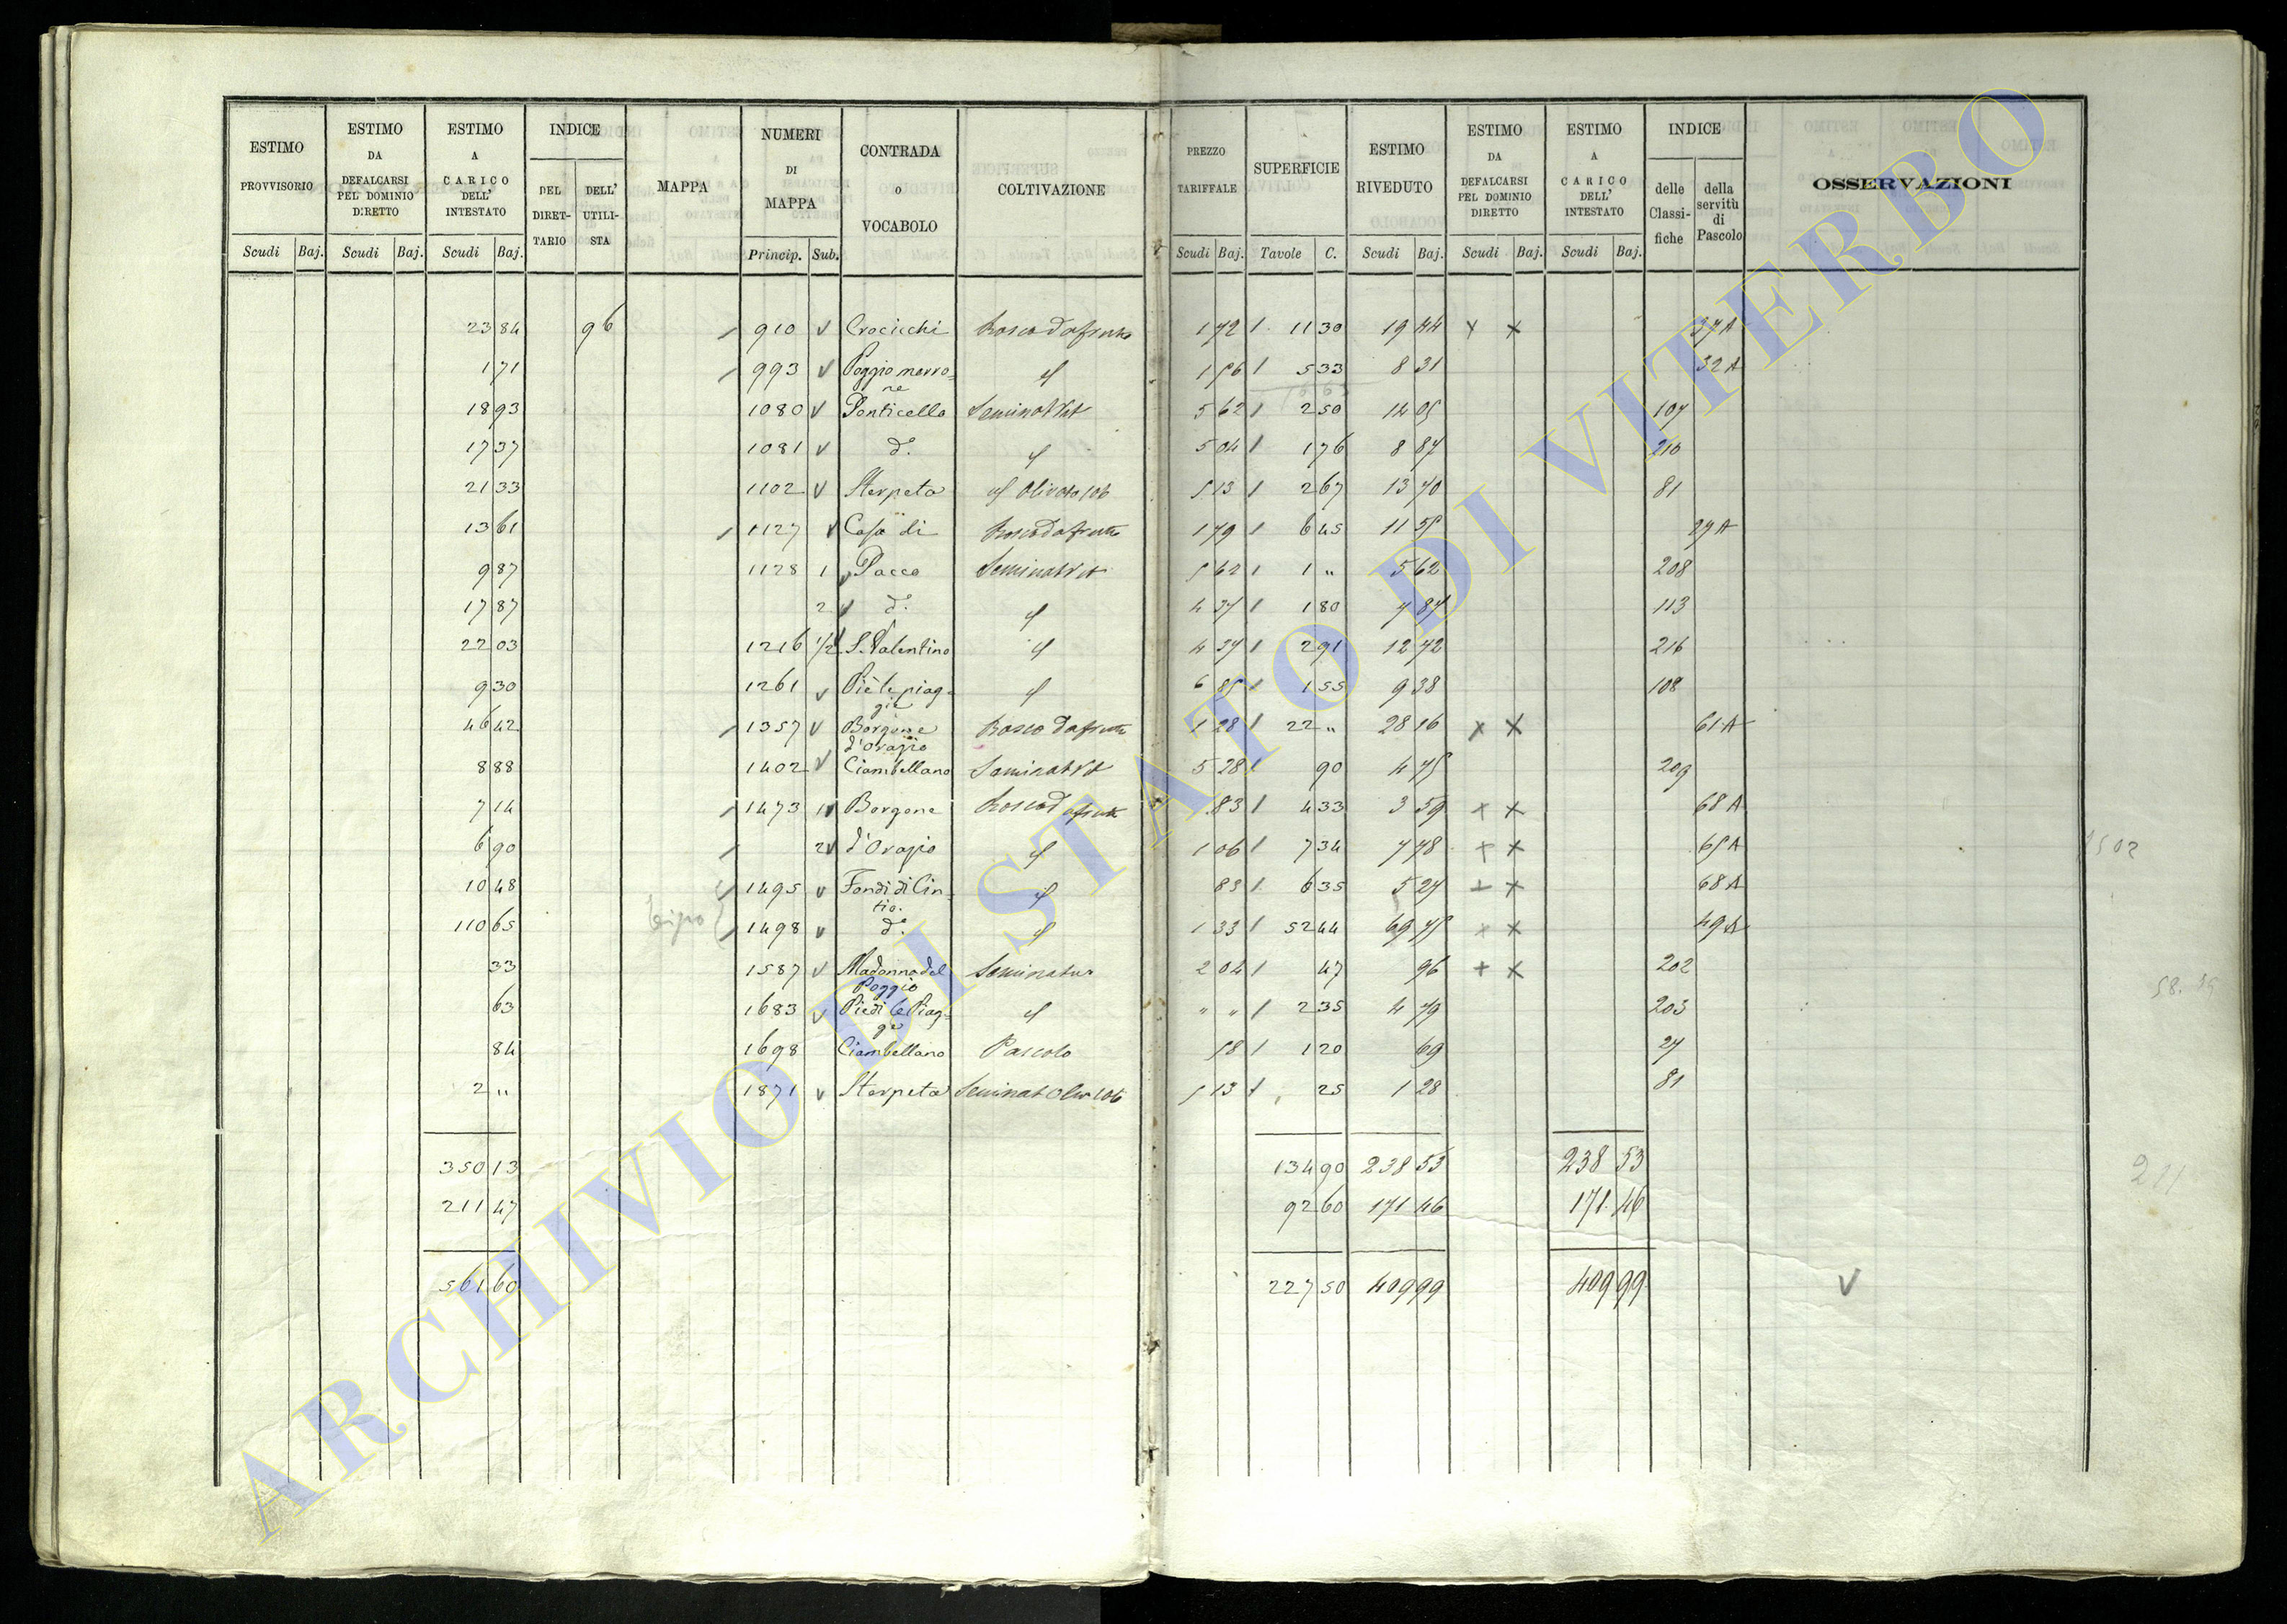 ESTIMO PROVVISORIO Scudi Baj. ESTIMO DA DEFALCARSI PEL DOMINIO DIRETTO Scudi Baj. ESTIMO A CARICO DELL' INTESTATO Scudi Baj. INDICE DEL DIRETTARIO DELL' UTILISTA MAPPA NUMERI DI MAPPA Princip. Sub. CONTRADA O VOCABOLO COLTIVAZIONE PREZZO TARIFFALE Scudi Baj. SUPERFICIE Tavole C. ESTIMO RIVEDUTO Scudi Baj. ESTIMO DA DEFALCARSI PEL DOMINIO DIRETTO Scudi Baj. ESTIMO A CARICO DELL' INTESTATO Scudi Baj. INDICE delle Classifiche della servitù di Pascolo OSSERVAZIONI
23 84 96 910 Crocicchi Bosco da frutto 1 72 11 30 19 44 x x 37 A
1 71 993 Poggio marro- 1 56 5 33 8 31 32 A
ne
18 93 1080 Ponticello Seminat Vit 5 62 2 50 14 05 107
17 37 1081 d.° 5 04 1 76 8 87 210
21 33 1102 Sterpeta Olivato 5 13 2 67 13 70 81
13 61 1127 Casa di Bosco da frutto 1 79 6 45 11 55 27 A
9 87 1128 1 Pacco Seminat Vit 5 62 1 " 5 62 208
17 87 2 d.° 4 37 1 80 7 87 113
22 03 1216 1/2 S. Valentino 4 37 2 91 12 72 216
9 30 1261 Piè le piag- 6 05 1 55 9 38 108
gie
46 42 1357 Borgone Bosco da frutto 1 28 22 " 28 16 x x 61 A
d'Orazio
8 88 1402 Ciambellano Seminat Vit 5 28 90 4 75 209
7 14 1473 1 Borgone Bosco da frutto 83 4 33 3 59 x x 68 A
6 90 2 d'Orazio 1 06 7 34 7 78 x x 65 A
10 48 1495 Fondi di Cin- 83 6 35 5 27 x x 68 A
tio.
110 65 1498 d.° 1 33 52 44 69 75 x x 49 A
33 1587 Madonna del Seminativo 2 04 47 96 x x 202
Poggio
63 1683 Piedi le Piag- " " 2 35 4 79 203
ge
84 1698 Ciambellano Pascolo 58 1 20 69 27
2 " 1871 Sterpeta Seminat Oliv 5 13 25 1 28 81
350 13 134 90 238 53 238 53
211 47 92 60 171 46 171 46
561 60 227 50 409 99 409 99
211
ARCHIVIO DI STATO DI VITERBO